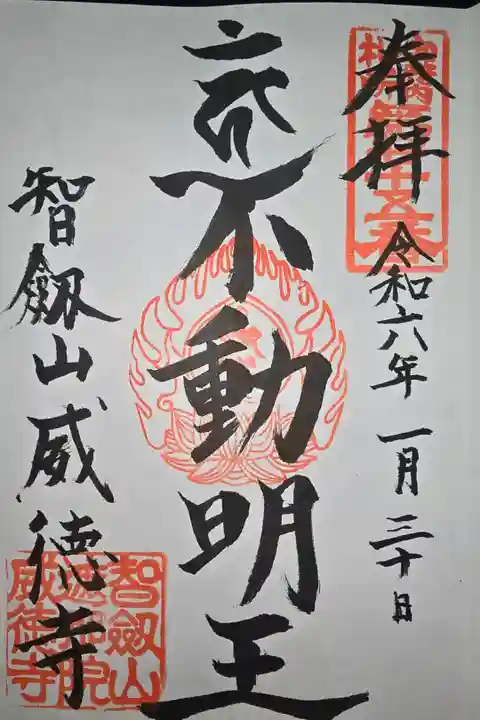 奉拝
令和六年一月三十日
不動明王
智劔山威徳寺
智劔山
威徳寺